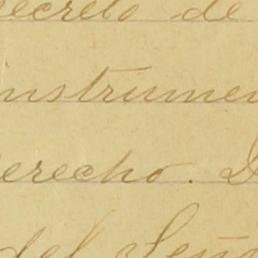 ecreto de
nstrumen
erecho. D
del Seño